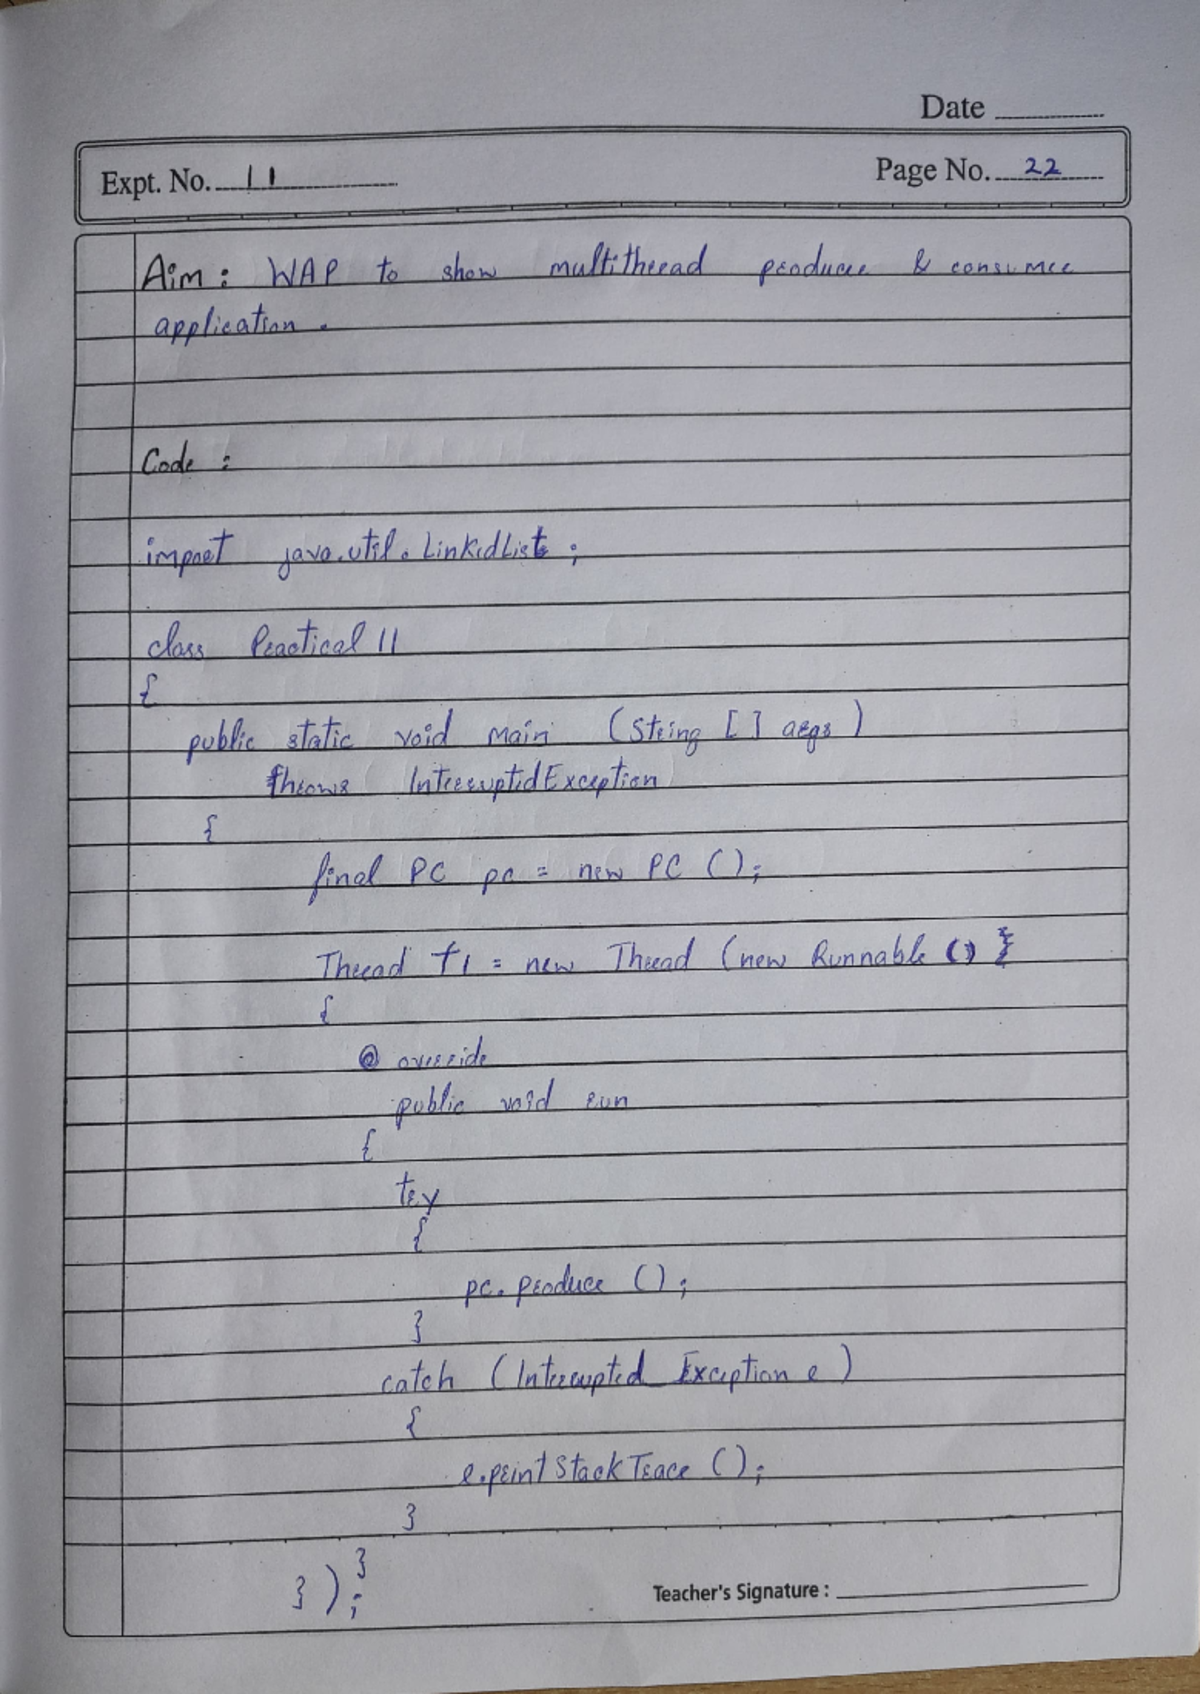 Date
Expt. No. 11
Page No. 22
Aim : WAP to show multithread producer & consumer
application .
Code :
import java.util.LinkedList ;
class Practical 11
{
public static void main (String [ ] args )
throws InterruptedException
{
final PC pc = new PC ();
Thread t1 = new Thread (new Runnable ()
{
@ override
public void run
{
try
{
pc. produce () ;
}
catch (Interrupted Exception e )
{
e.print Stack Trace () ;
}
}
} ) ;
Teacher's Signature :